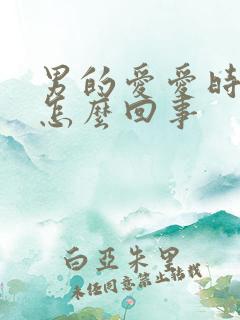 男的爱爱时
怎麼回事
白亞朱里
未经同意禁止转载